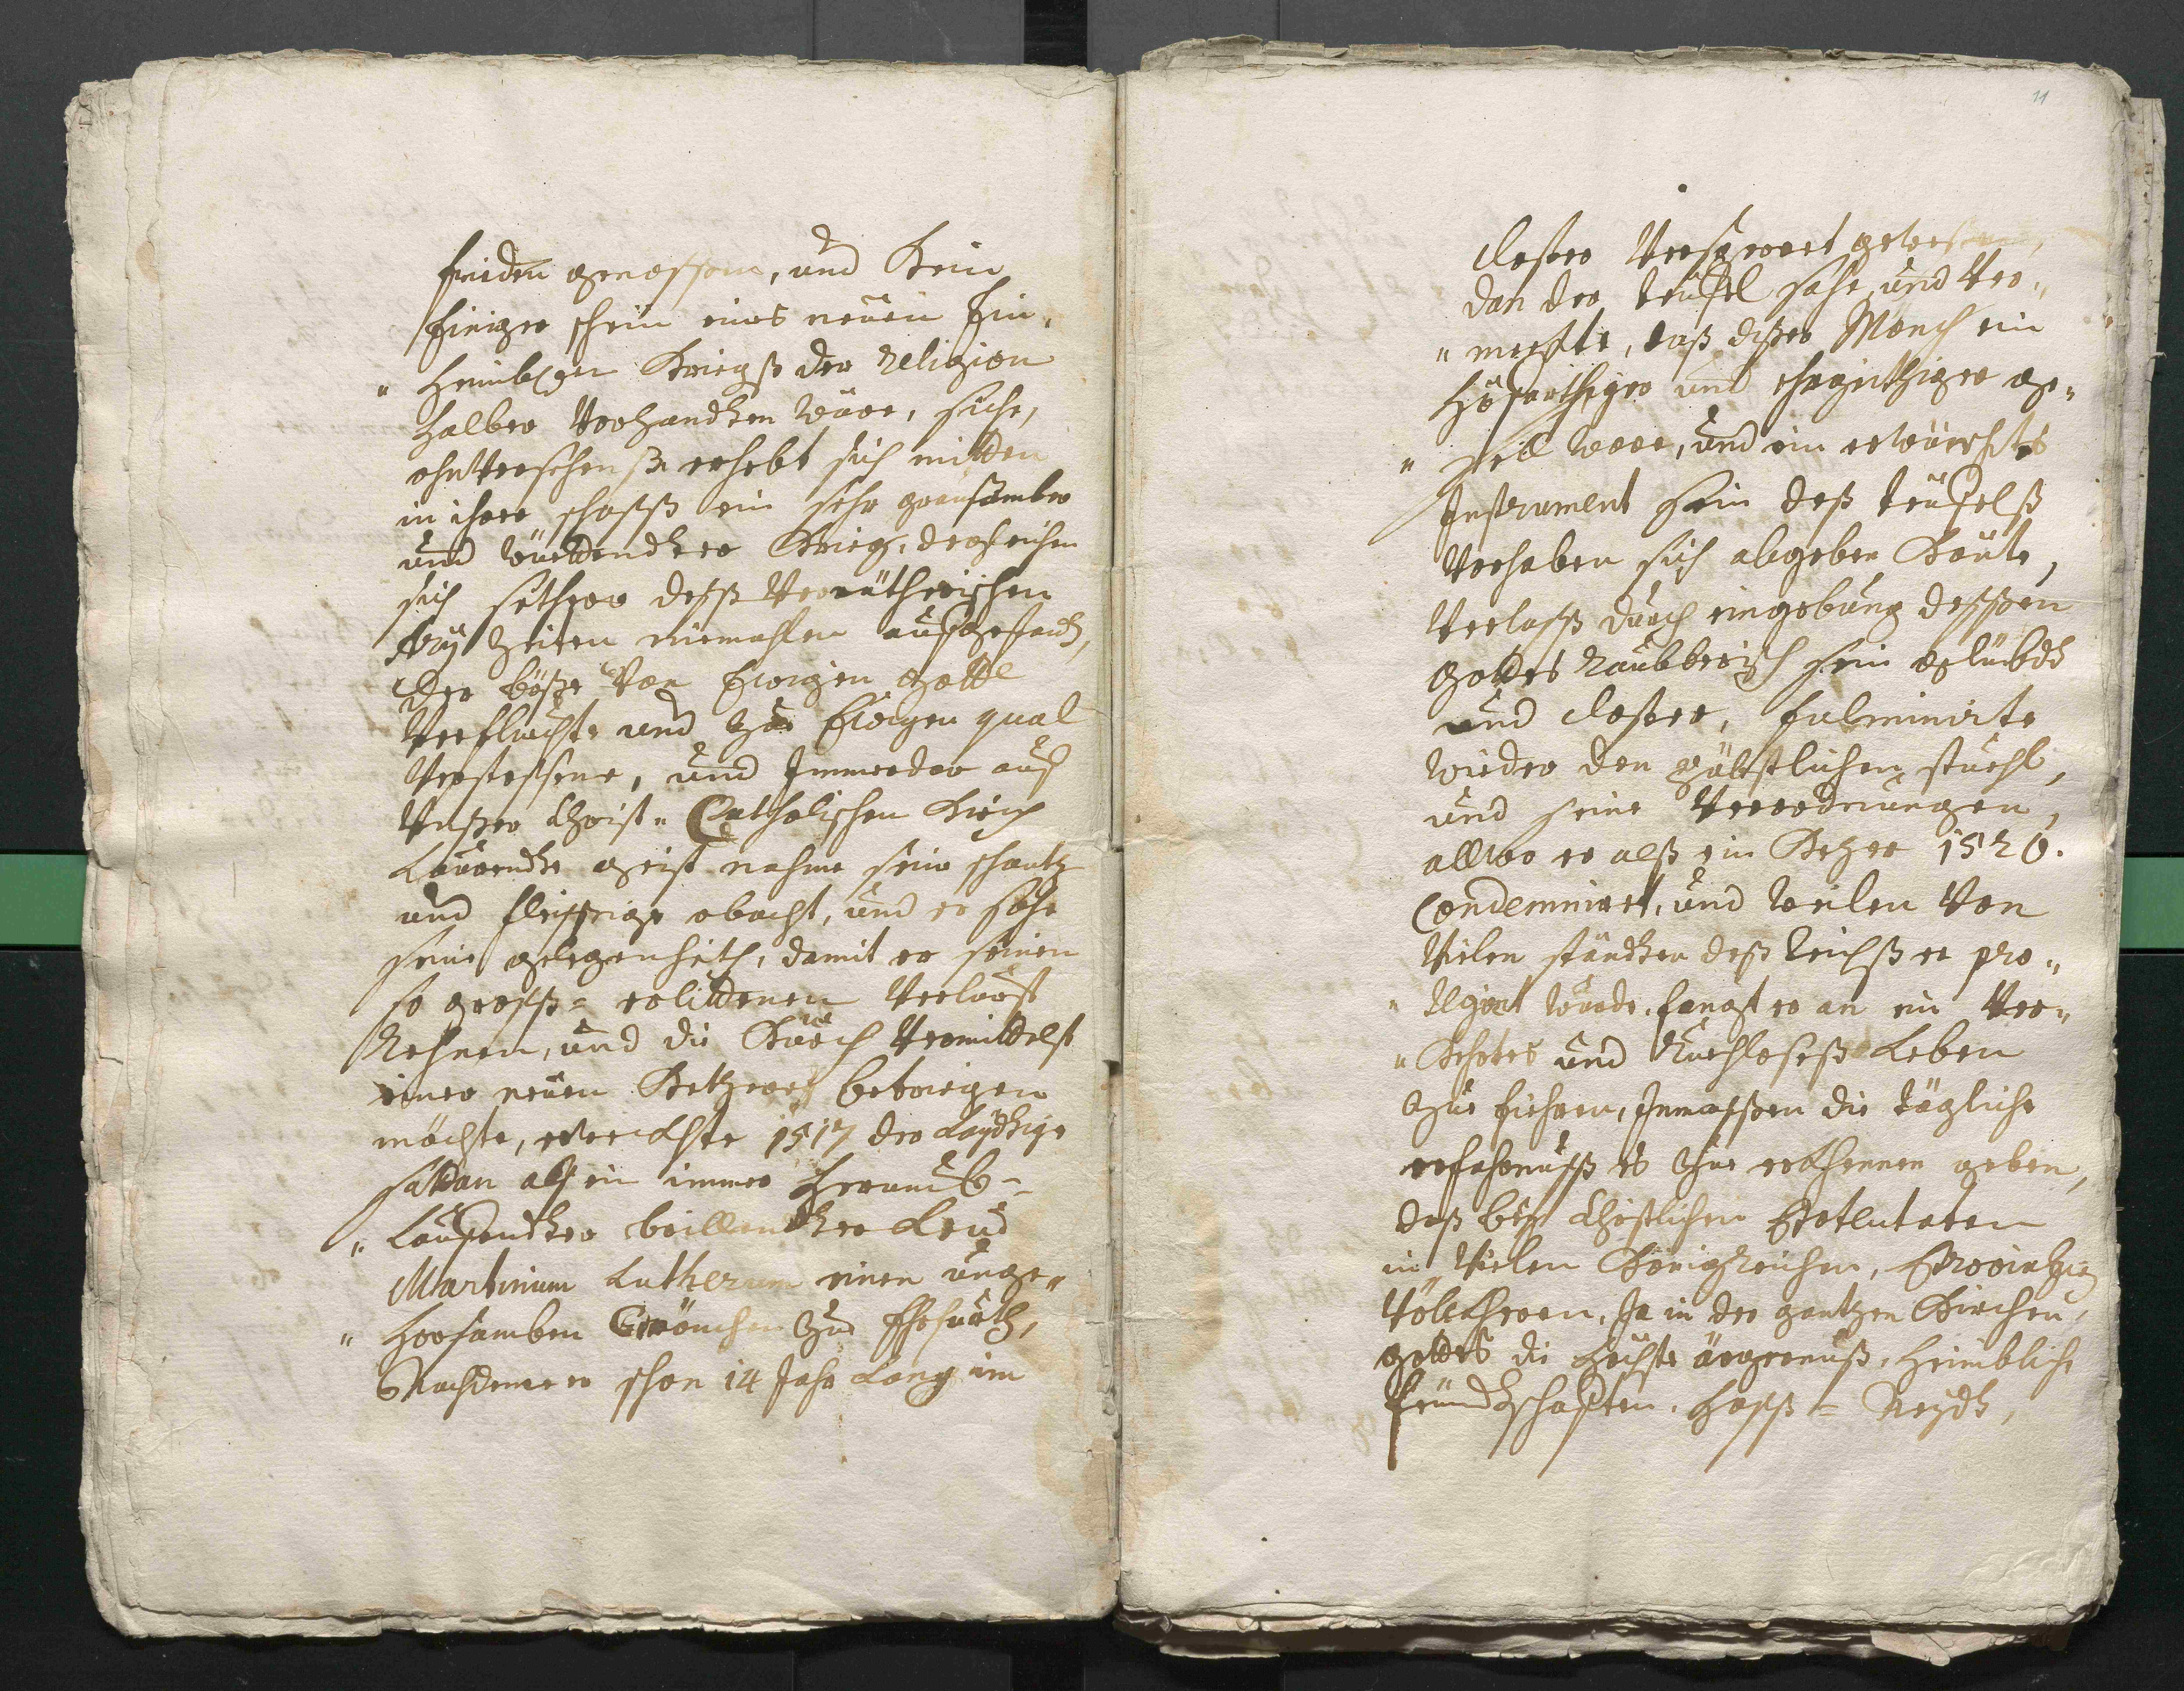 frieden genossen, und Kein
Einiger schein eines neuen Ein„
„ heimbschen Kriegß der Religion
halber Vorhandten wäre, siehe,
ohnVersehenß erhebt sich mitten
in ihrer schosß ein sehr graüsamber
und wüettendter Krieg, dergleichen
sich seither desß Verrätherischen
Arij Zeiten niemahlen aufgestandt,
Der böße Von Ewigen Gott
Verfluchte und Zue Ewigen qual
Verstossene, und Immerdar auf
Unßer Christ„ Catholischen Kirch
Laurendte geist nahme sein schantz
und fleissige obacht, und er sahe
seine gelegenheith, damit er seinen
so gross= erlittenen Verlurst
Rehnen, und die Kürch Vermittelst
einer neuen Ketzerey betriegen
möchte, erweckhte 1517 der Laydtige
sattan alß ein immer herumb„
„ Lauffendter brillendter Leud
Martinum Lutherum einen unge„
„ horsamben Mönchen Zue Erfurth,
Nachdeme er schon 14 Jahr Lang im
11
closter Versperret gewesen,
dan der teüfel sahe, und Ver„
„ merckte, daß dißer Mönch ein
Hofärthiger und ehrgeitziger ge„
„ sell ware, und ein erwünschtes
Instrument sein deß teüfelß
Vorhaben sich abgeben Könte,
Verlasß durch eingebung dessßen
gottes Raubberisch sein gelübdt
und closter, fulminirte
wieder den päbstlichen stuehl,
und seine Verordnungen,
allwo er alß ein Ketzer 1520.
Condemniret, und weilen Von
Vielen ständten deß Reichß er pro„
„ tegiert wurde, fangt er an ein Ver„
„ Kehrtes und Ruchloseß Leben
Zue fiehren, Inmassßen die tägliche
erfahrnusß es Zue erkhennen geben,
daß beÿ Christlichen Potentaten
in Vielen Königreichen, Provintzen
Völckheren, Ja in der gantzen Kirchen
gottes die höchste ärgernuß, heimbliche
feündtschafften, hasß= Neydt,